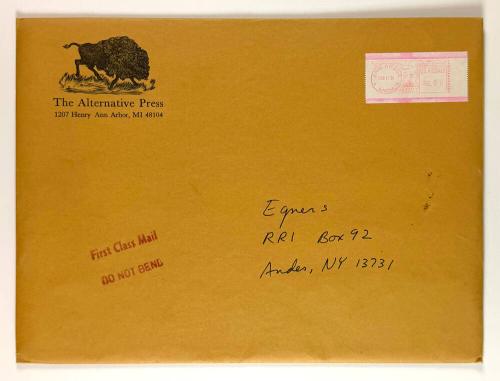 The Alternative Press
1207 Henry Ann Arbor, MI 48104
First Class Mail
DO NOT BEND
Egners
RR1 Box 92
Andes, NY 13731